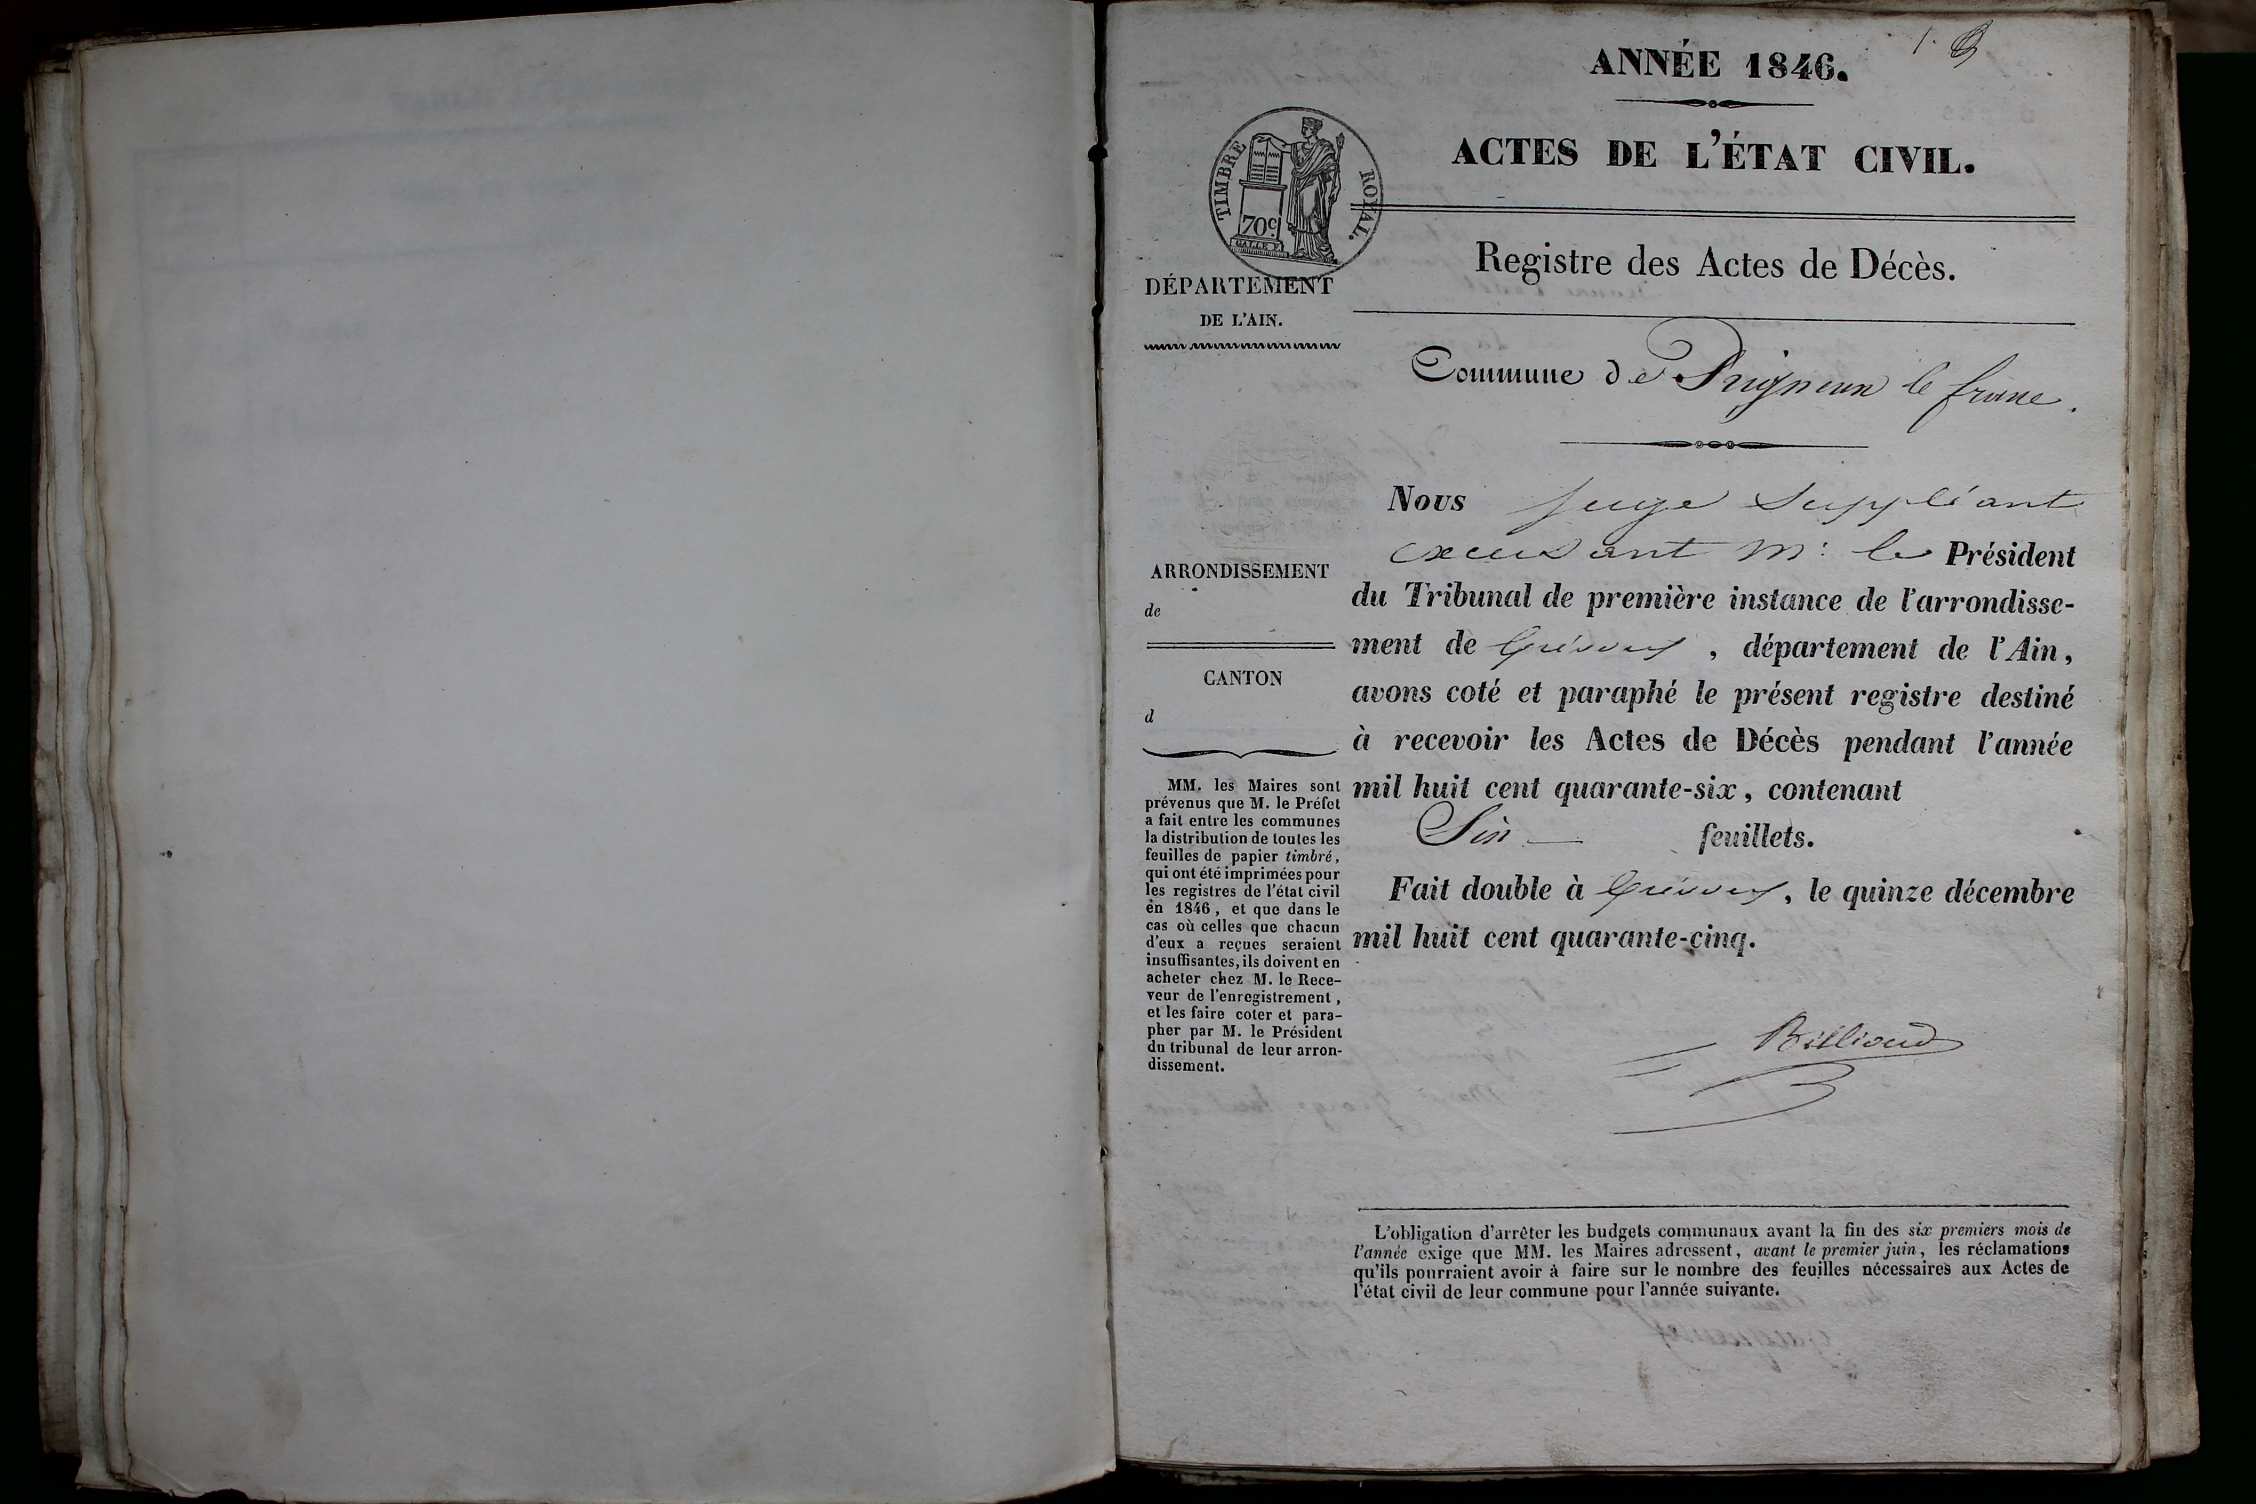 1. B
ANNÉE 1846.
ACTES DE L'ÉTAT CIVIL.
TIMBRE ROYAL.
70c.
Registre des Actes de Décès.
DÉPARTEMENT
DE L'AIN.
Commune de le franc.
Nous Juge Suppléant
excusant Mr. le Président
du Tribunal de première instance de l'arrondisse-
ment de Trévoux, département de l'Ain,
avons coté et paraphé le présent registre destiné
à recevoir les Actes de Décès pendant l'année
mil huit cent quarante-six, contenant
Six feuillets.
Fait double à Trévoux, le quinze décembre
mil huit cent quarante-cinq.
Billioud
ARRONDISSEMENT
de
CANTON
d
MM. les Maires sont
prévenus que M. le Préfet
a fait entre les communes
la distribution de toutes les
feuilles de papier timbré,
qui ont été imprimées pour
les registres de l'état civil
en 1846, et que dans le
cas où celles que chacun
d'eux a reçues seraient
insuffisantes, ils doivent en
acheter chez M. le Rece-
veur de l'enregistrement,
et les faire coter et para-
pher par M. le Président
du tribunal de leur arron-
dissement.
L'obligation d'arrêter les budgets communaux avant la fin des six premiers mois de
l'année exige que MM. les Maires adressent, avant le premier juin, les réclamations
qu'ils pourraient avoir à faire sur le nombre des feuilles nécessaires aux Actes de
l'état civil de leur commune pour l'année suivante.